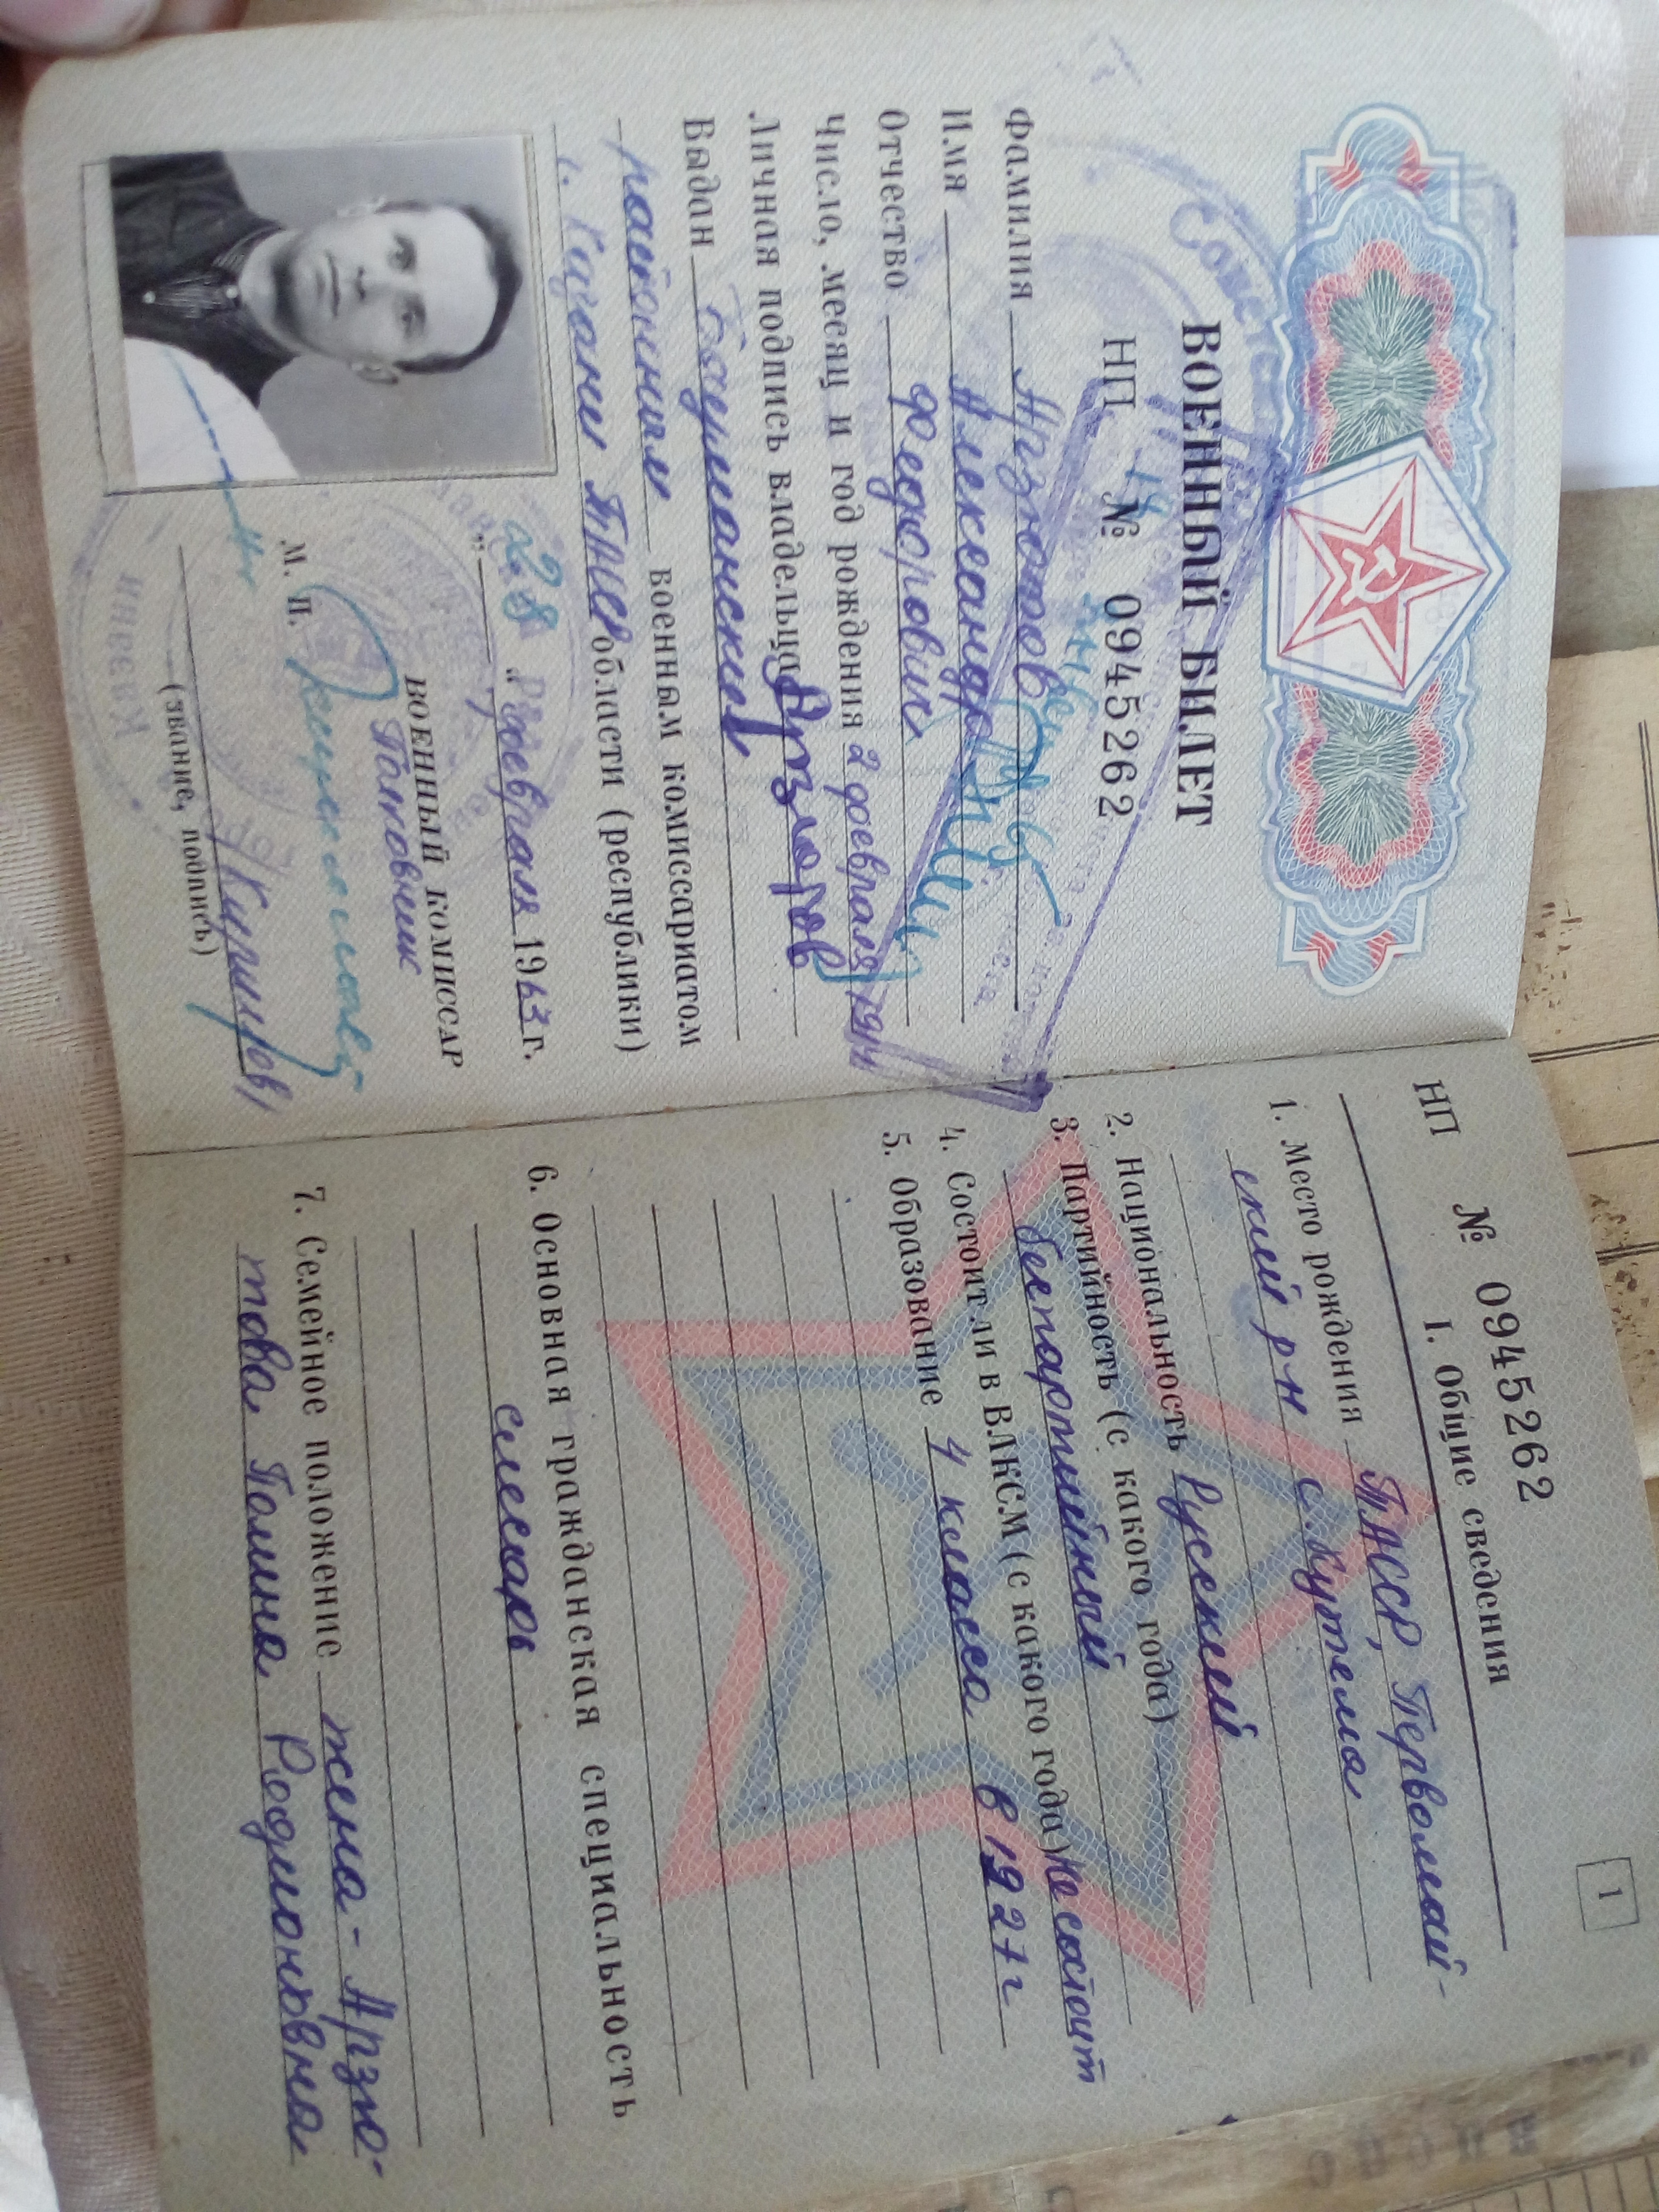 ВОЕННЫЙ БИЛЕТ
НП № 0945262
Фамилия Арзютов
Имя Александр
Отчество Федорович
Число, месяц и год рождения 2 февраля 1914
Личная подпись владельца Арзютов
Выдан Бауманским
районным военным комиссариатом
г. Казани ТАССР области (республики)
"28" февраля 1963 г.
ВОЕННЫЙ КОМИССАР
Полковник
М. П.
/Кириллов/
(звание, подпись)
НП № 0945262
1
I. Общие сведения
1. Место рождения ТАССР, Первомай-
ский р-н с. Кутема
2. Национальность Русский
3. Партийность (с какого года)
беспартийный
4. Состоит ли в ВЛКСМ (с какого года) Не состоит
5. Образование 4 класса в 1927 г
6. Основная гражданская специальность
слесарь
7. Семейное положение жена - Арзю-
това Полина Родионовна